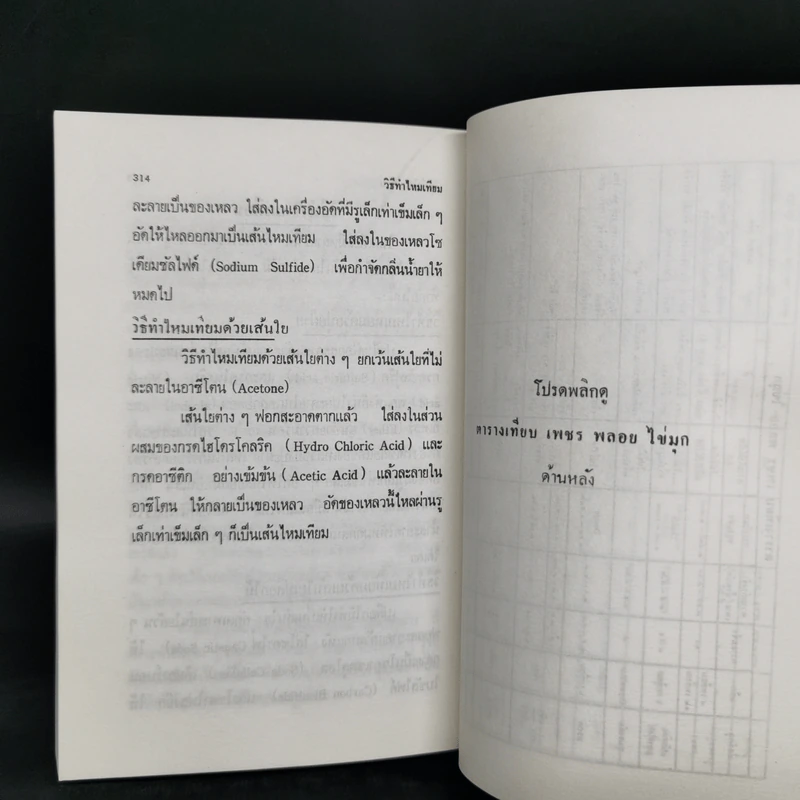 314
วิธีทำไหมเทียม
ละลายเป็นของเหลว ใส่ลงในเครื่องอัดที่มีรูเล็กเท่าเข็มเล็ก ๆ
อัดให้ไหลออกมาเป็นเส้นไหมเทียม ใส่ลงในของเหลวโซ
เดียมซัลไฟด์ (Sodium Sulfide) เพื่อกำจัดกลิ่นน้ำยาให้
หมดไป
วิธีทำไหมเทียมด้วยเส้นใย
วิธีทำไหมเทียมด้วยเส้นใยต่าง ๆ ยกเว้นเส้นใยที่ไม่
ละลายในอาซีโตน (Acetone)
เส้นใยต่าง ๆ ฟอกสะอาดตากแล้ว ใส่ลงในส่วน
ผสมของกรดไฮโดรโคลริค (Hydro Chloric Acid) และ
กรดอาซีติก อย่างเข้มข้น (Acetic Acid) แล้วละลายใน
อาซีโตน ให้กลายเป็นของเหลว อัดของเหลวนี้ไหลผ่านรู
เล็กเท่าเข็มเล็ก ๆ ก็เป็นเส้นไหมเทียม
โปรดพลิกดู
ตารางเทียบ เพชร พลอย ไข่มุก
ด้านหลัง